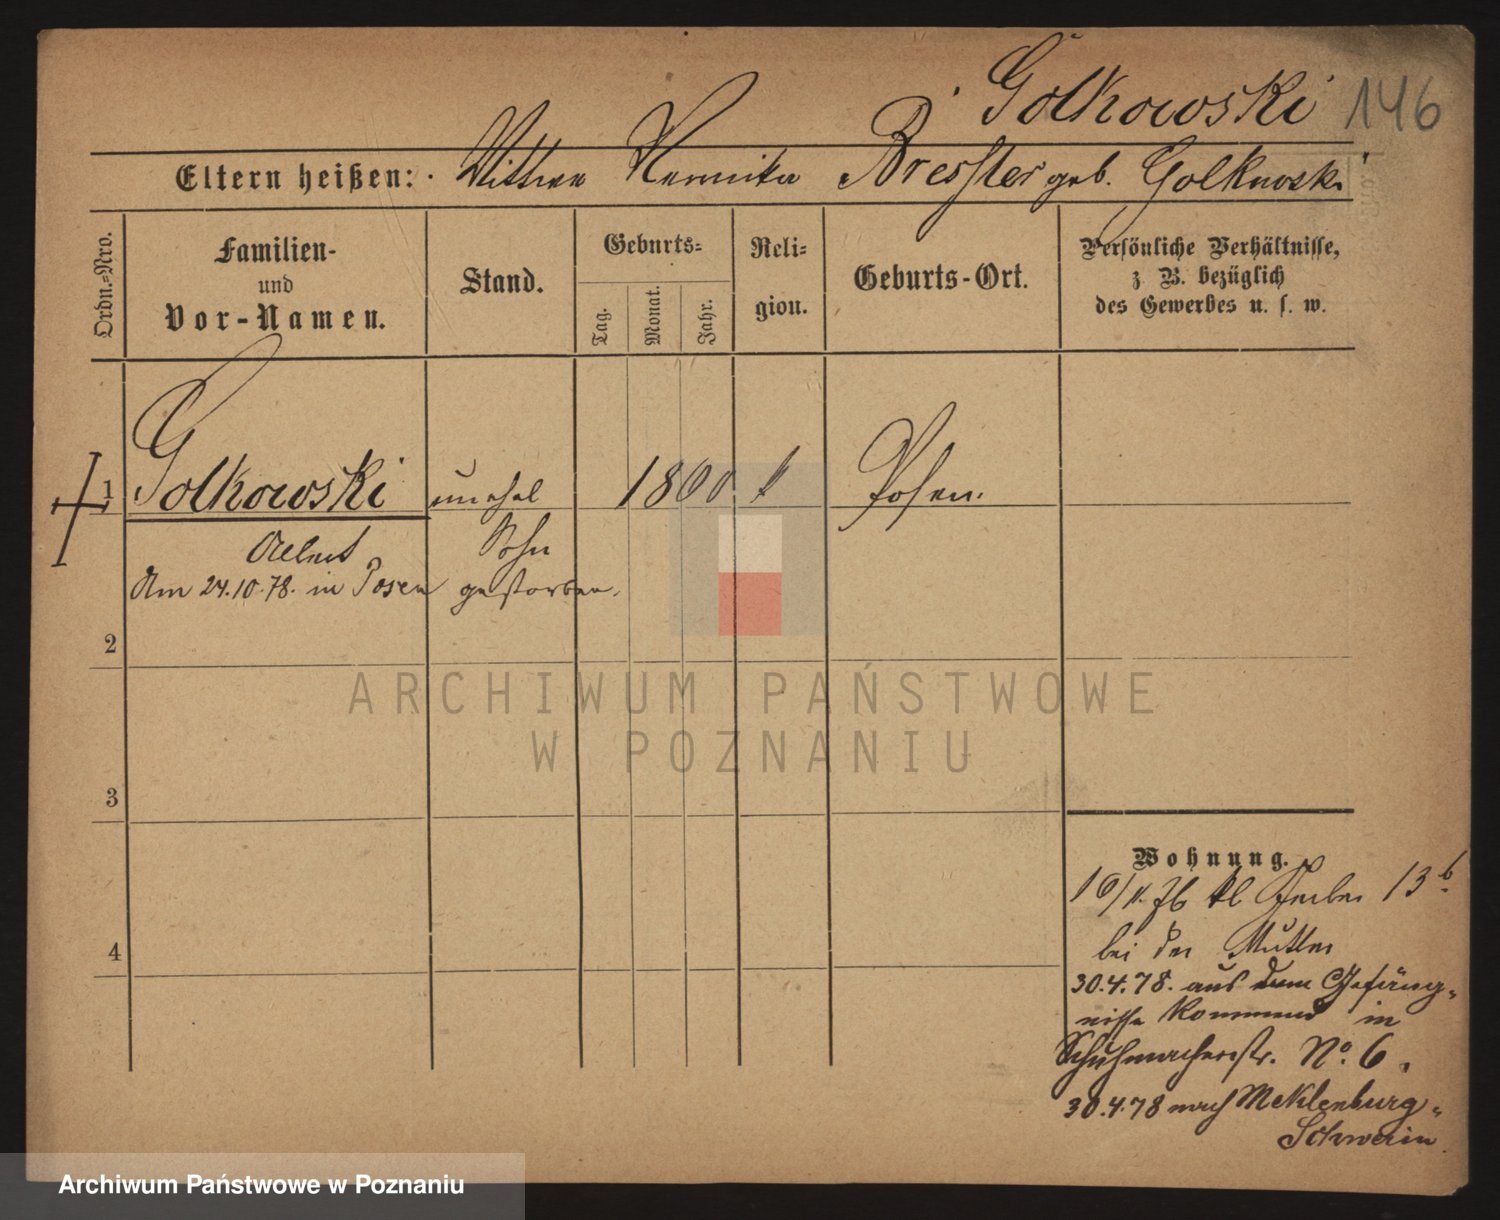 Golkowski 146
Eltern heißen: Bressler geb. Golkowski
Ordn.-Nro.
Familien-
und
Vor-Namen.
Stand.
Geburts-
Tag.
Monat.
Jahr.
Reli-
gion.
Geburts-Ort.
Persönliche Verhältnisse,
z. B. bezüglich
des Gewerbes u. s. w.
1 Golkowski unehel 1860 k Posen.
Sohn
Am 24.10.78. in Posen gestorben.
2
3
4
Wohnung.
kl Gerber 13 b.
bei der Mutter
30.4.78. aus dem Gefäng-
nisse kommend in
Schuhmacherstr. No. 6.
30.4.78 nach Mecklenburg-
Schwerin
ARCHIWUM PAŃSTWOWE
W POZNANIU
Archiwum Państwowe w Poznaniu